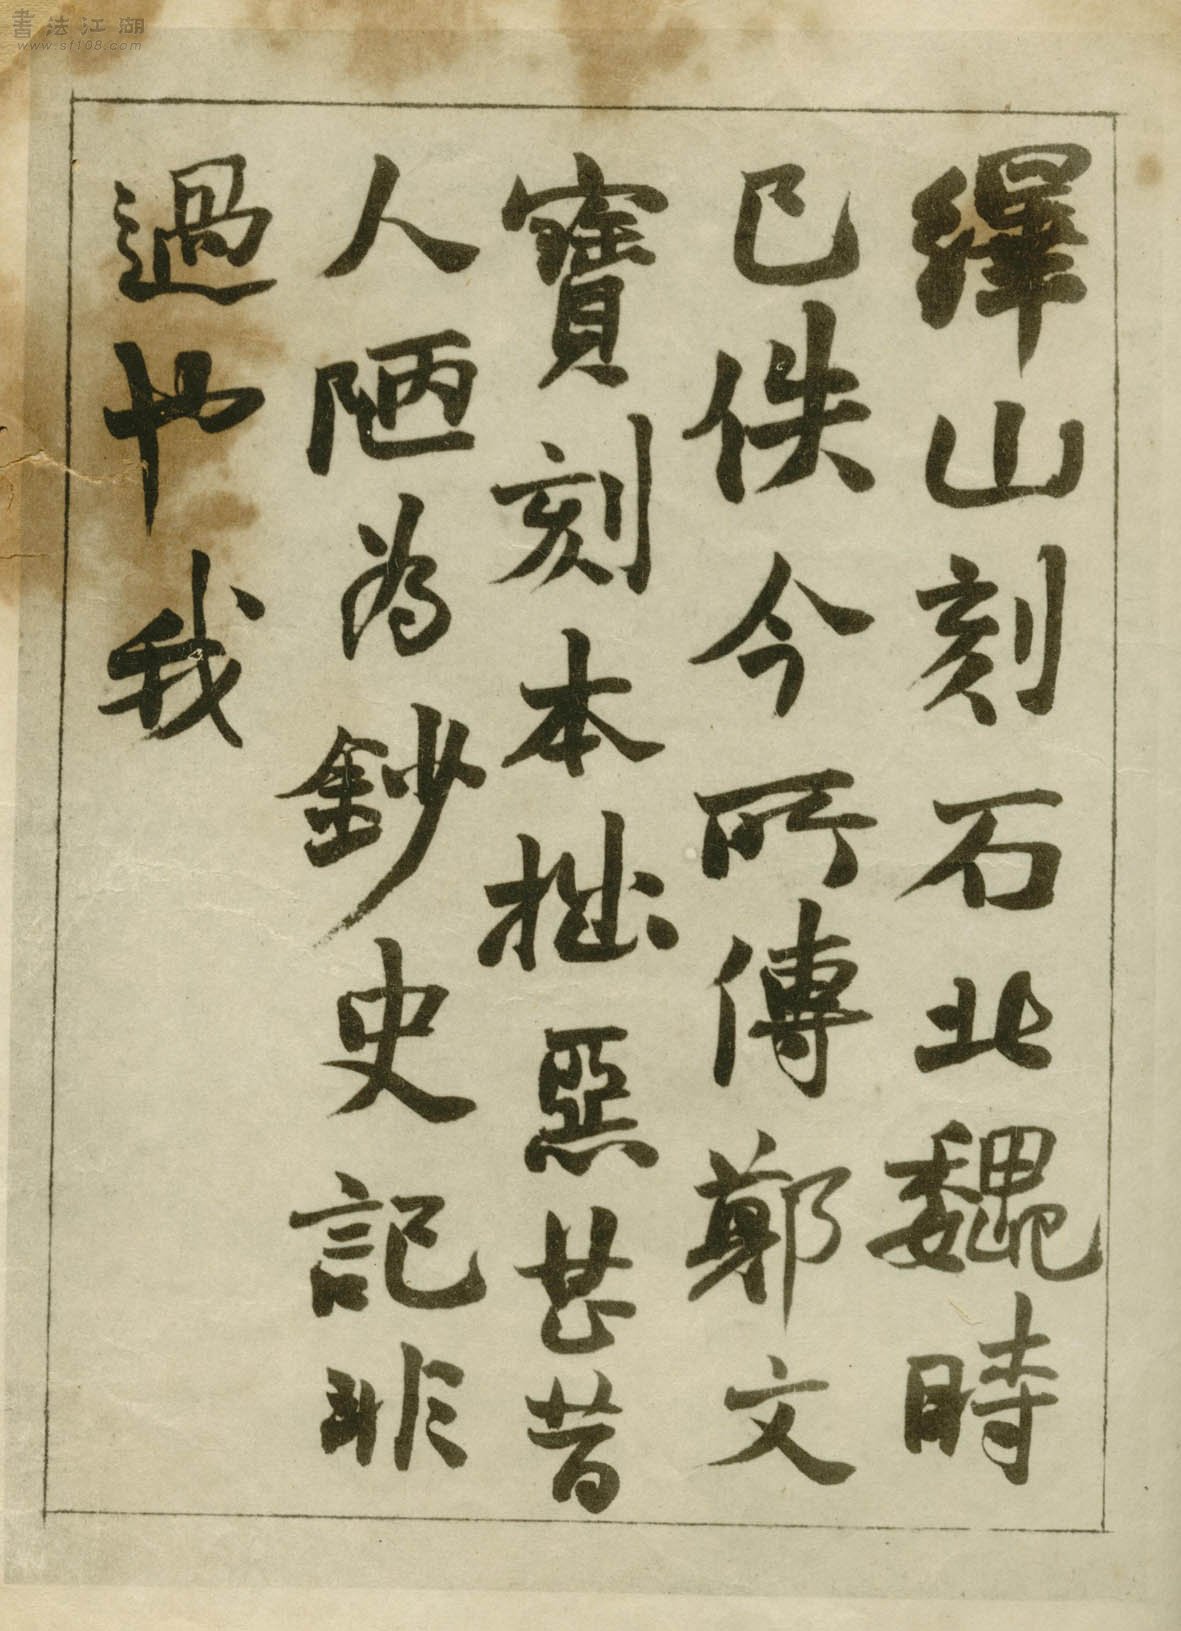 繹山刻石北魏時
已佚今所傳鄭文
寶刻本拙惡甚昔
人陋為鈔史記非
過也我
書法江湖
www.sf108.com